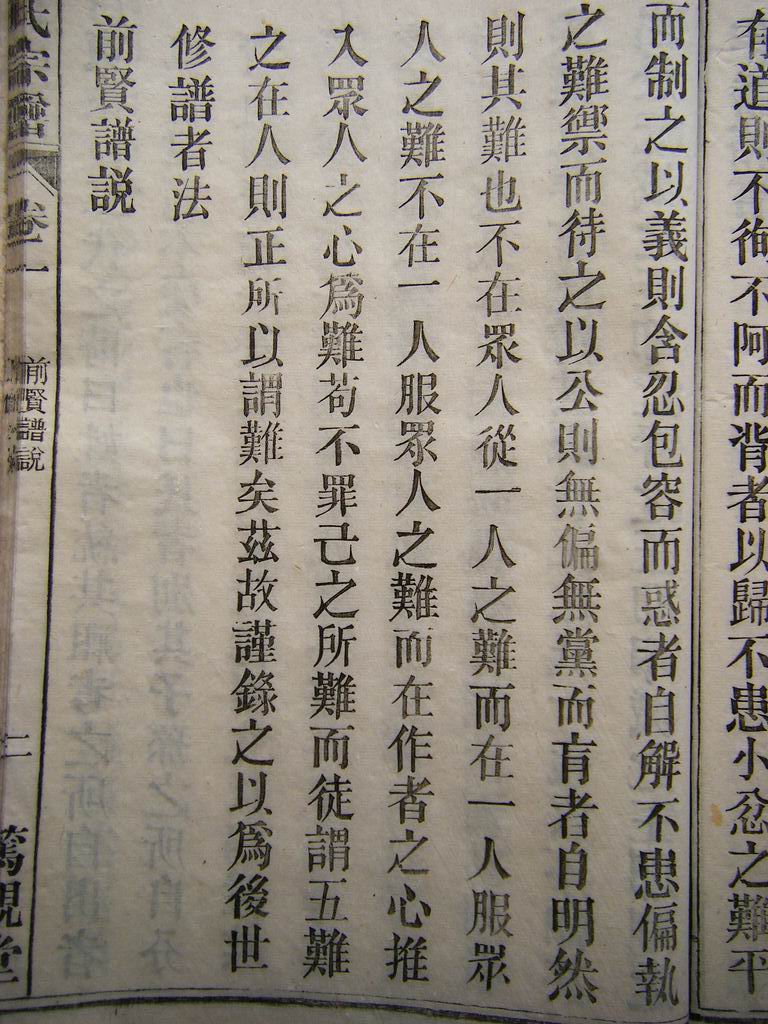 有道則不徇不阿而背者以歸不患小忿之難平
而制之以義則含忍包容而惑者自解不患偏執
之難禦而待之以公則無偏無黨而盲者自明然
則其難也不在眾人從一人之難而在一人服眾
人之難不在一人服眾人之難而在作者之心推
入眾人之心為難苟不罪己之所難而徒謂五難
之在人則正所以謂難矣茲故謹錄之以為後世
修譜者法
前賢譜説
氏宗譜
卷二
前賢譜説
二
篤親堂